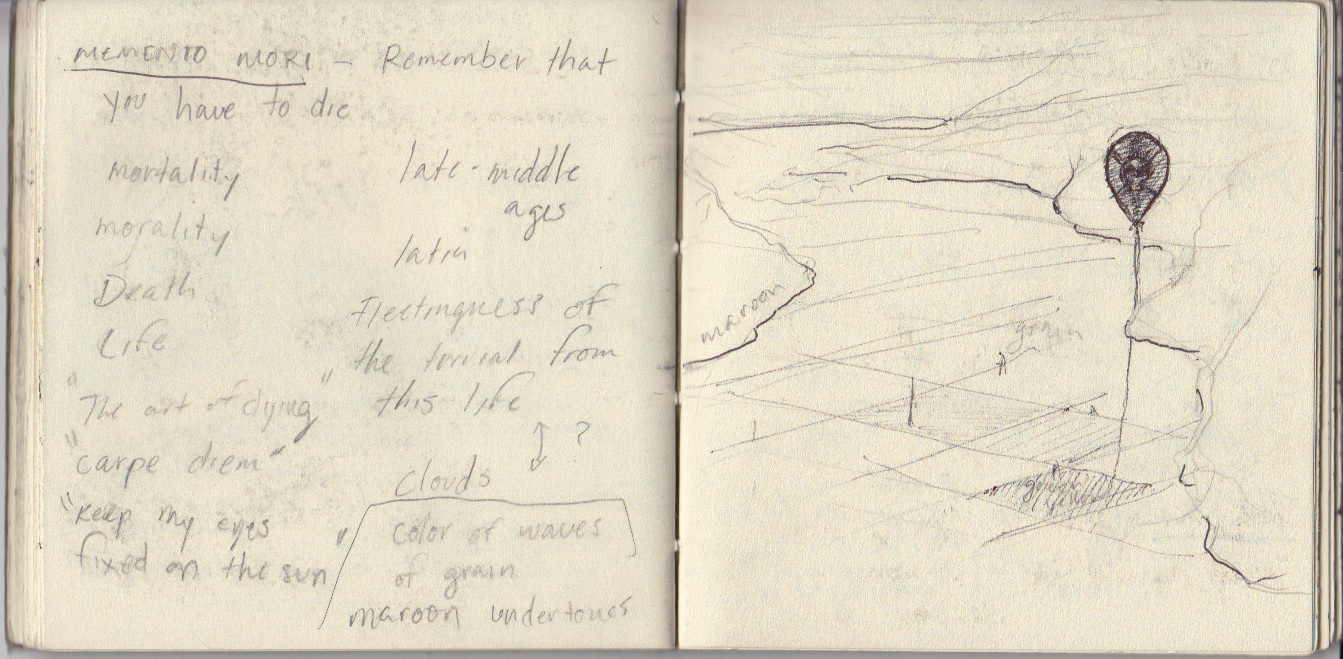 MEMENTO MORI - Remember that
you have to die
mortality
morality
Death
Life
"The art of dying"
"carpe diem"
"Keep my eyes
fixed on the sun"
late-middle
ages
latin
Fleetingness of
the from
this life
?
Clouds
color of waves
of grain
maroon undertones
maroon
grain